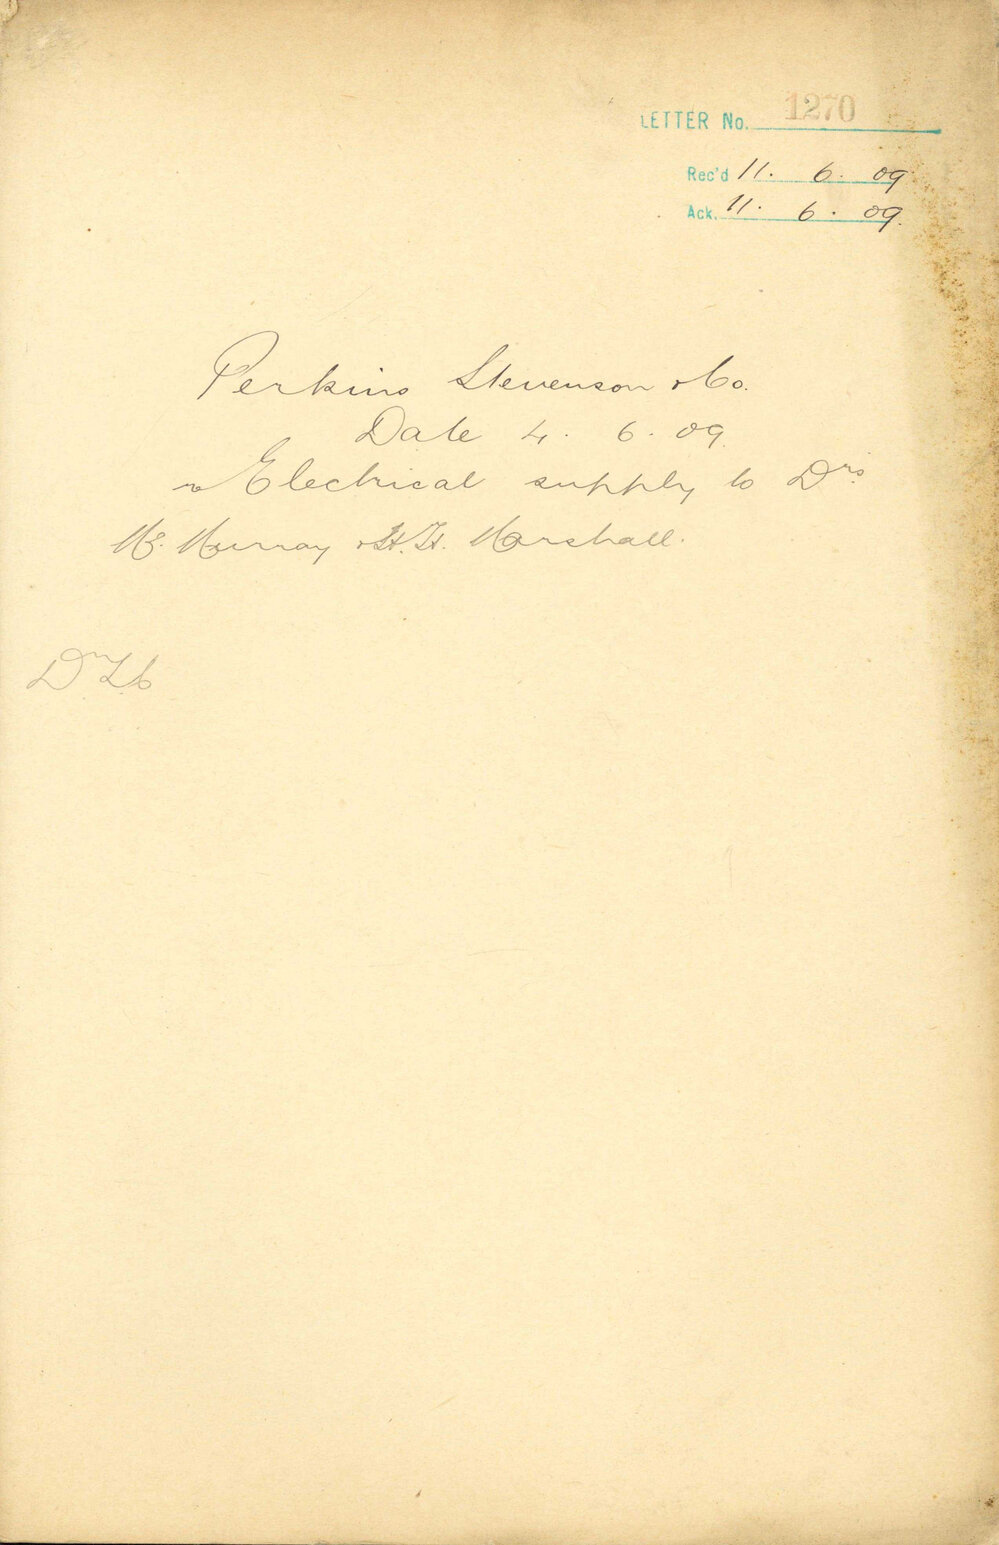 LETTER No. 1270
Rec'd 11. 6. 09
Ack. 11. 6. 09.
Perkins Stevenson & Co.
Date 4. 6. 09
re Electrical supply to Drs
Mc. Murray & H. H. Marshall.